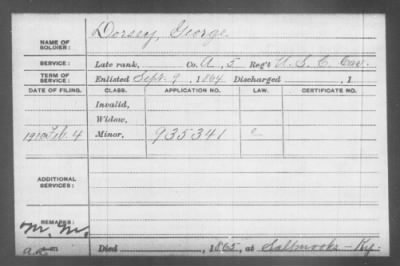 NAME OF SOLDIER: Dorsey, George
SERVICE: Late rank, Co. A, 5 Reg't U.S.C. Cav.
TERM OF SERVICE: Enlisted Sept. 9, 1864 Discharged , 1
DATE OF FILING. CLASS. APPLICATION NO. LAW. CERTIFICATE NO.
Invalid,
Widow,
Feb. 4 Minor, 935341
ADDITIONAL SERVICES:
REMARKS:
M.M.
Died , 1865, at Ky.